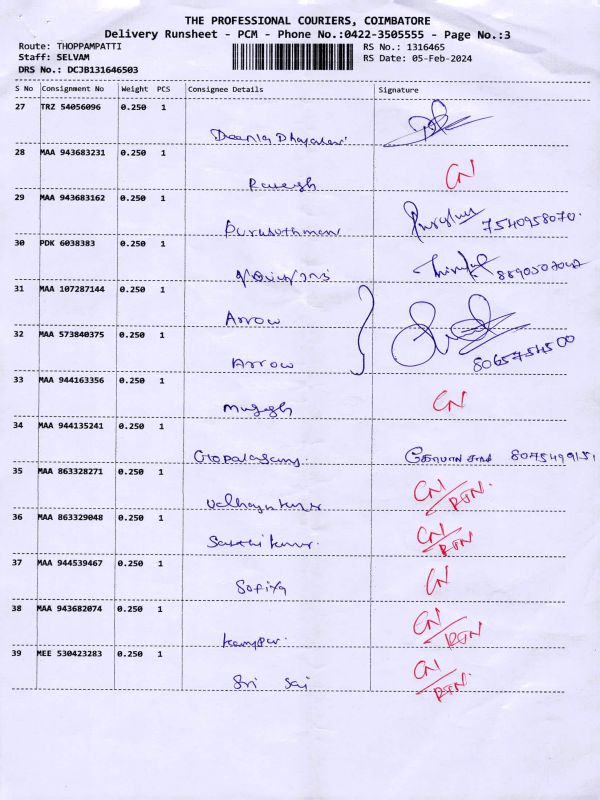 THE PROFESSIONAL COURIERS, COIMBATORE
Delivery Runsheet - PCM - Phone No.:0422-3505555 - Page No.:3
Route: THOPPAMPATTI RS No.: 1316465
Staff: SELVAM RS Date: 05-Feb-2024
DRS No.: DCJB131646503
S No Consignment No Weight PCS Consignee Details Signature
27 TRZ 54056096 0.250 1
28 MAA 943683231 0.250 1
CN
Rakesh
29 MAA 943683162 0.250 1
Purusothman 7540958070.
30 PDK 6038383 0.250 1
31 MAA 107287144 0.250 1
Arrow
32 MAA 573840375 0.250 1
Arrow
33 MAA 944163356 0.250 1
CN
34 MAA 944135241 0.250 1
Gopalasamy கோபால் சாமி
35 MAA 863328271 0.250 1
CN/RTN.
36 MAA 863329048 0.250 1
Sakthi kumar. CN/RTN.
37 MAA 944539467 0.250 1
Sofiya CN
38 MAA 943682074 0.250 1
CN/RTN
39 MEE 530423283 0.250 1
Sri Sai CN/RTN.